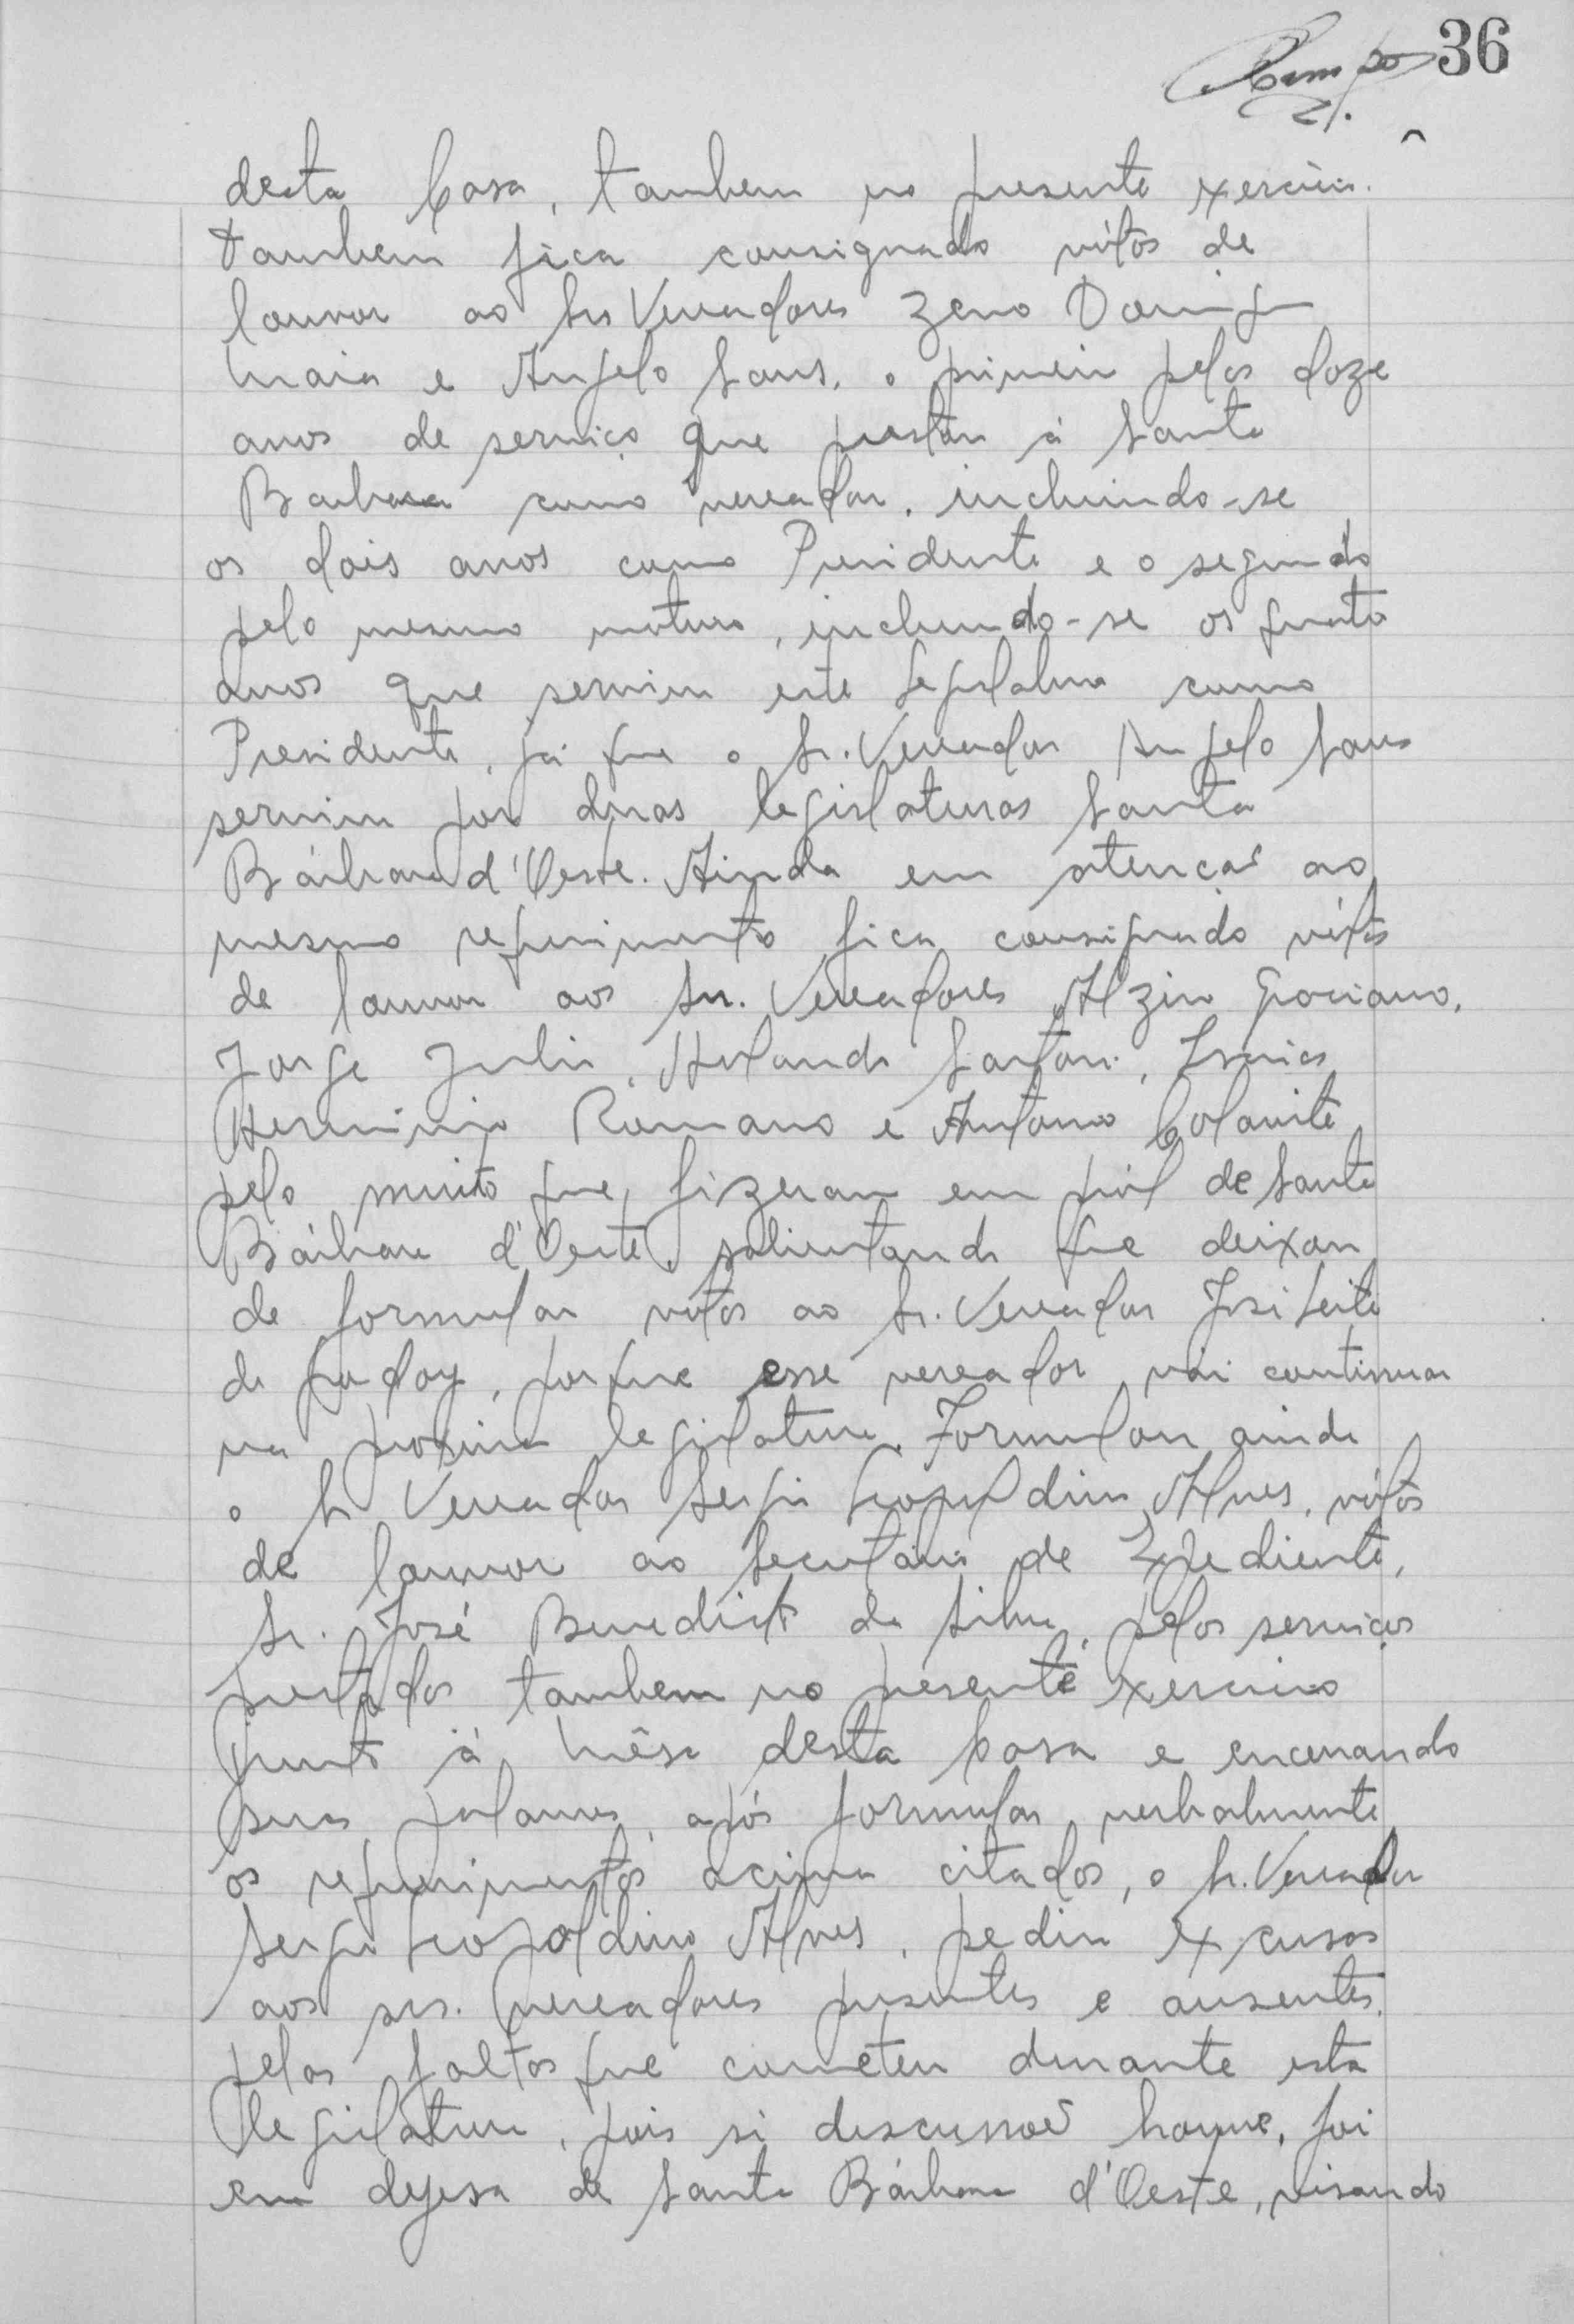 36
desta Casa, tambem no presente exercicio.
tambem fica consignado vótos de
louvor ao Srs Vereadores Zeno Doming
Maia e Angelo Sans, o primeiro pelos doze
anos de serviço que prestou á Santa
Barbara como vereador, incluindo-se
os dois anos como Presidente e o segundo
pelo mesmo motivo, incluindo-se os quatro
anos que serviu esta legislatura como
Presidente, já que o Sr. Vereador Angelo Sans
serviu por duas legislaturas Santa
Bárbara d'Oeste. Ainda em atenção ao
mesmo requerimento fica consignado vótos
de louvor aos Srs. Vereadores Alziro Graciano,
Jorge Julio, Orlando Sartori, Isaias
Herminio Romano e Antonio Colavite
pelo muito que fizeram em ról de Santa
Bárbara d'Oeste, salientando que deixou
de formular votos ao Sr. Vereador José Leite
de Godoy, porque esse vereador vai continuar
na proxima legislatura. Formulou ainda
o Sr Vereador Sergio Leopoldino Alves, vótos
de louvor ao Secretário de Expediente,
Sr. José Benedicto da Silva, pelos serviços
prestados tambem no presente exercicio
junto á Mêsa desta Casa e encerrando
suas palavras, após formular verbalmente
os requerimentos acima citados, o Sr. Vereador
Sergio Leopoldino Alves, pediu excusas
aos srs. vereadores presentes e ausentes,
pelas faltas que cometeu durante esta
legislatura, pois si discussão houve, foi
em defesa de Santa Bárbara d'Oeste, visando